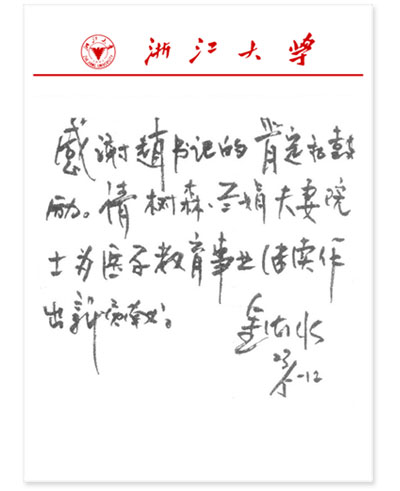 浙江大学
感谢赵书记的肯定和鼓
励。请树森、兰娟夫妻院
士为医学教育事业继续作
出新贡献。
金德水